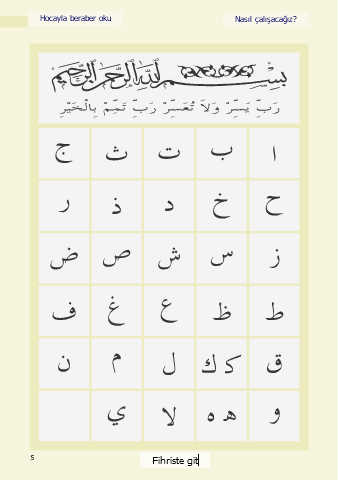 Hocayla beraber oku
Nasıl çalışacağız?
بسم الله الرحمن الرحيم
رَبِّ يَسِّرْ وَلاَ تُعَسِّرْ رَبِّ تَمِّمْ بِالْخَيْرِ
ا ب ت ث ج
ح خ د ذ ر
ز س ش ص ض
ط ظ ع غ ف
ق ك ك ل م ن
و ه ه لا ي
5
Fihriste git